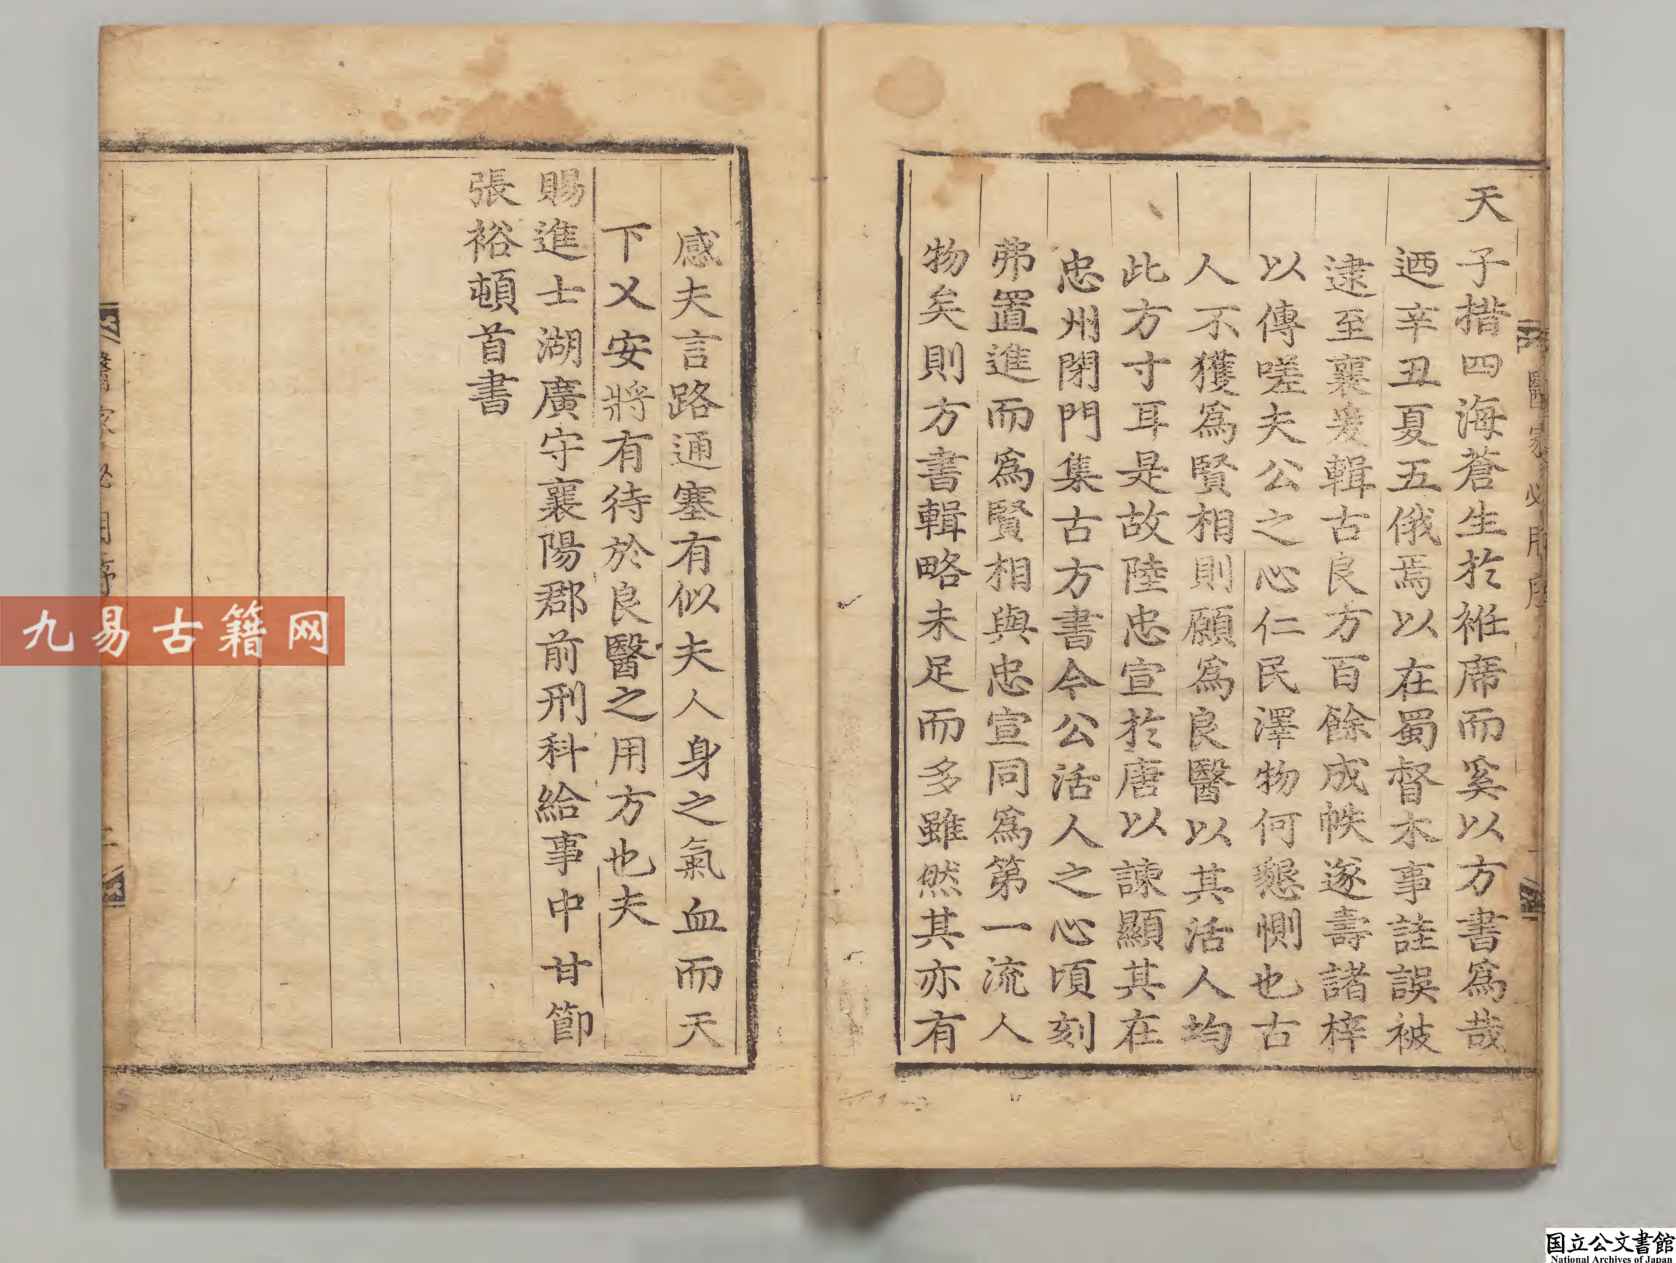 天子措四海蒼生於袵席而奚以方書爲哉
迺辛丑夏五俄焉以在蜀督木事詿誤被
逮至襄爰輯古良方百餘成帙遂壽諸梓
以傳嗟夫公之心仁民澤物何懇惻也古
人不獲爲賢相則願爲良醫以其活人均
此方寸耳是故陸忠宣於唐以諫顯其在
忠州閉門集古方書今公活人之心頃刻
弗置進而爲賢相與忠宣同爲第一流人
物矣則方書輯略未足而多雖然其亦有
感夫言路通塞有似夫人身之氣血而天
下乂安將有待於良醫之用方也夫
賜進士湖廣守襄陽郡前刑科給事中甘節
張裕頓首書
醫家必用序
九易古籍网
国立公文書館
National Archives of Japan